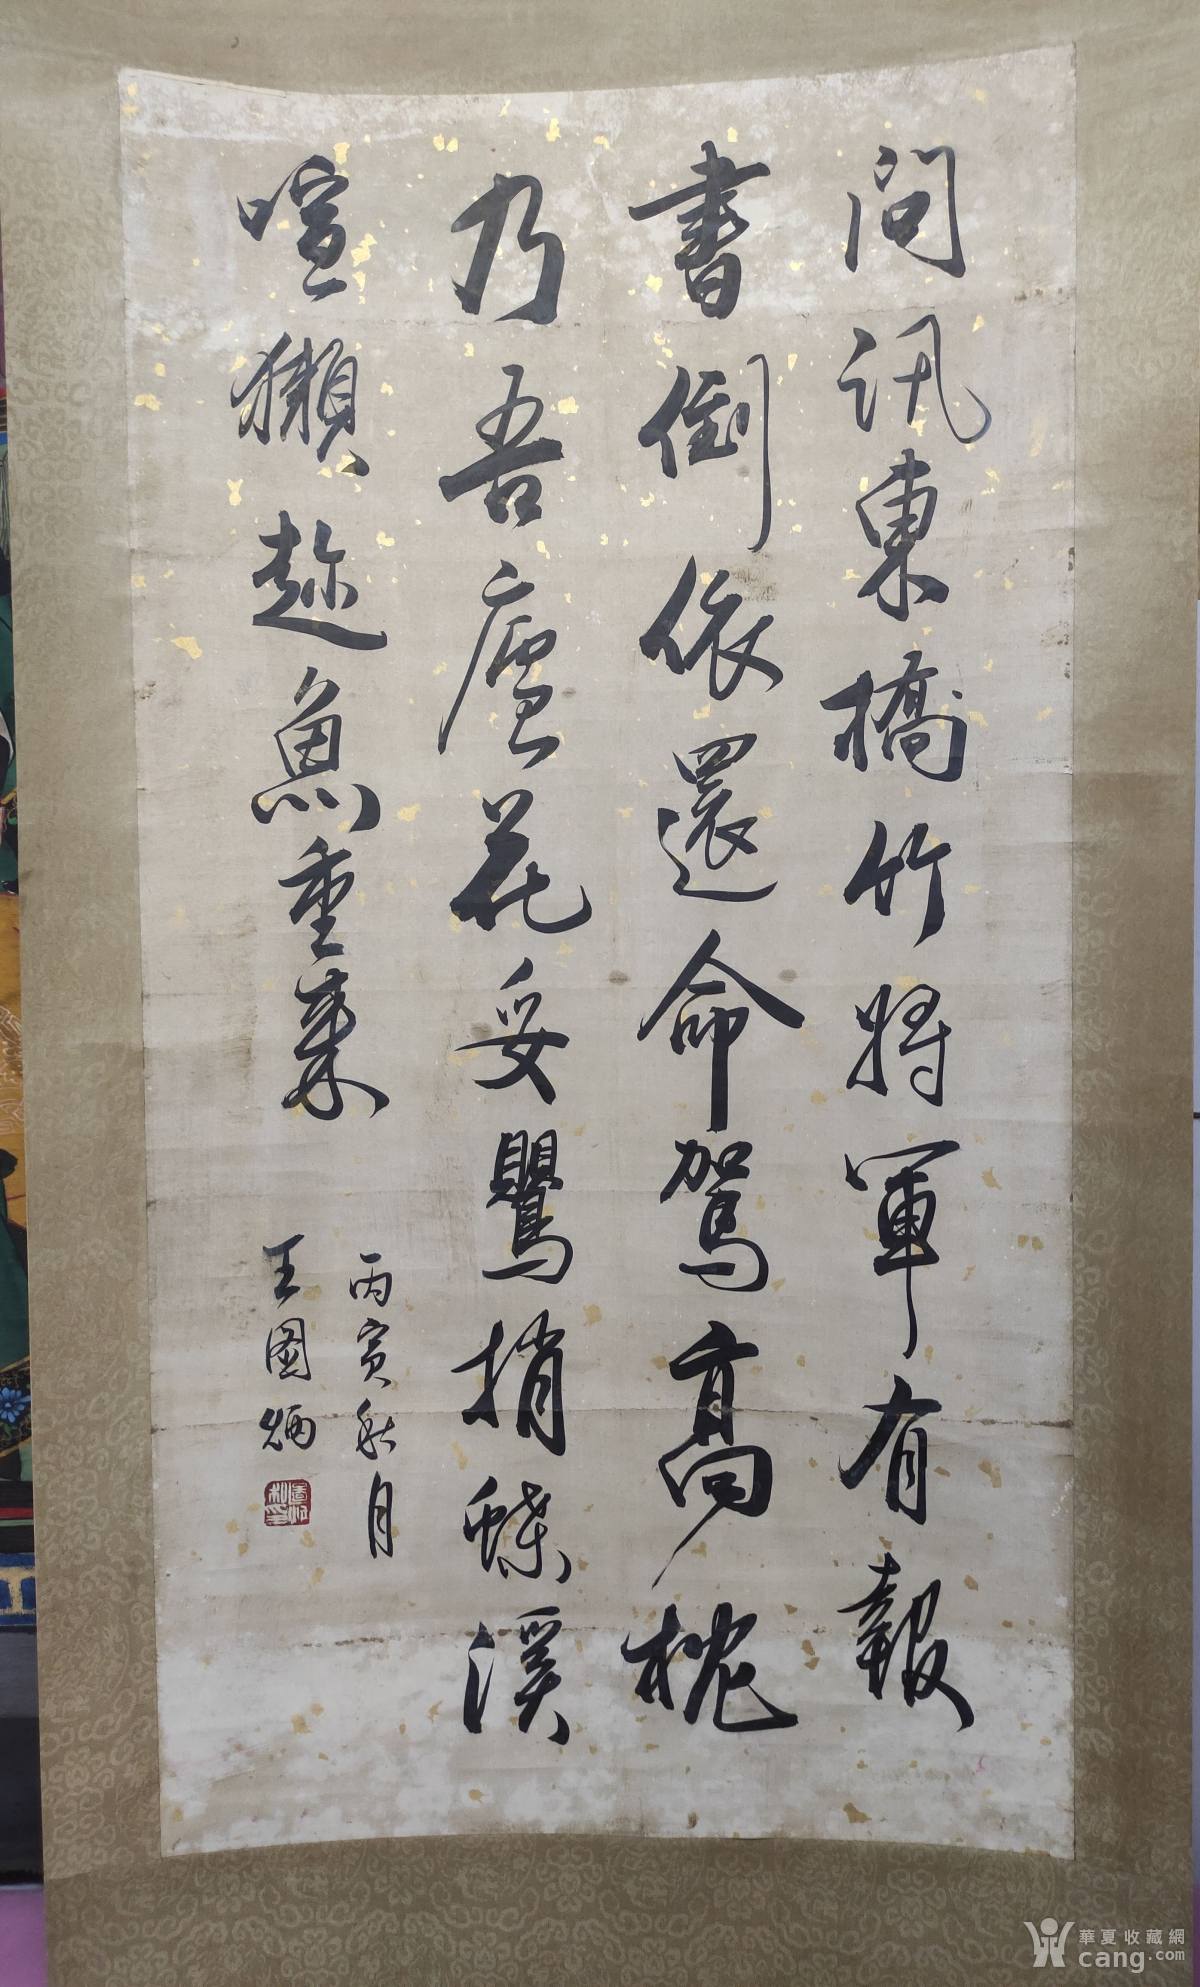 问讯東橋竹将軍有報
書倒依還命駕高枕
乃吾廬花妥鶯捎蝶溪
喧獺趁魚重来
丙寅秋月
王图炳
華夏收藏網
cang.com